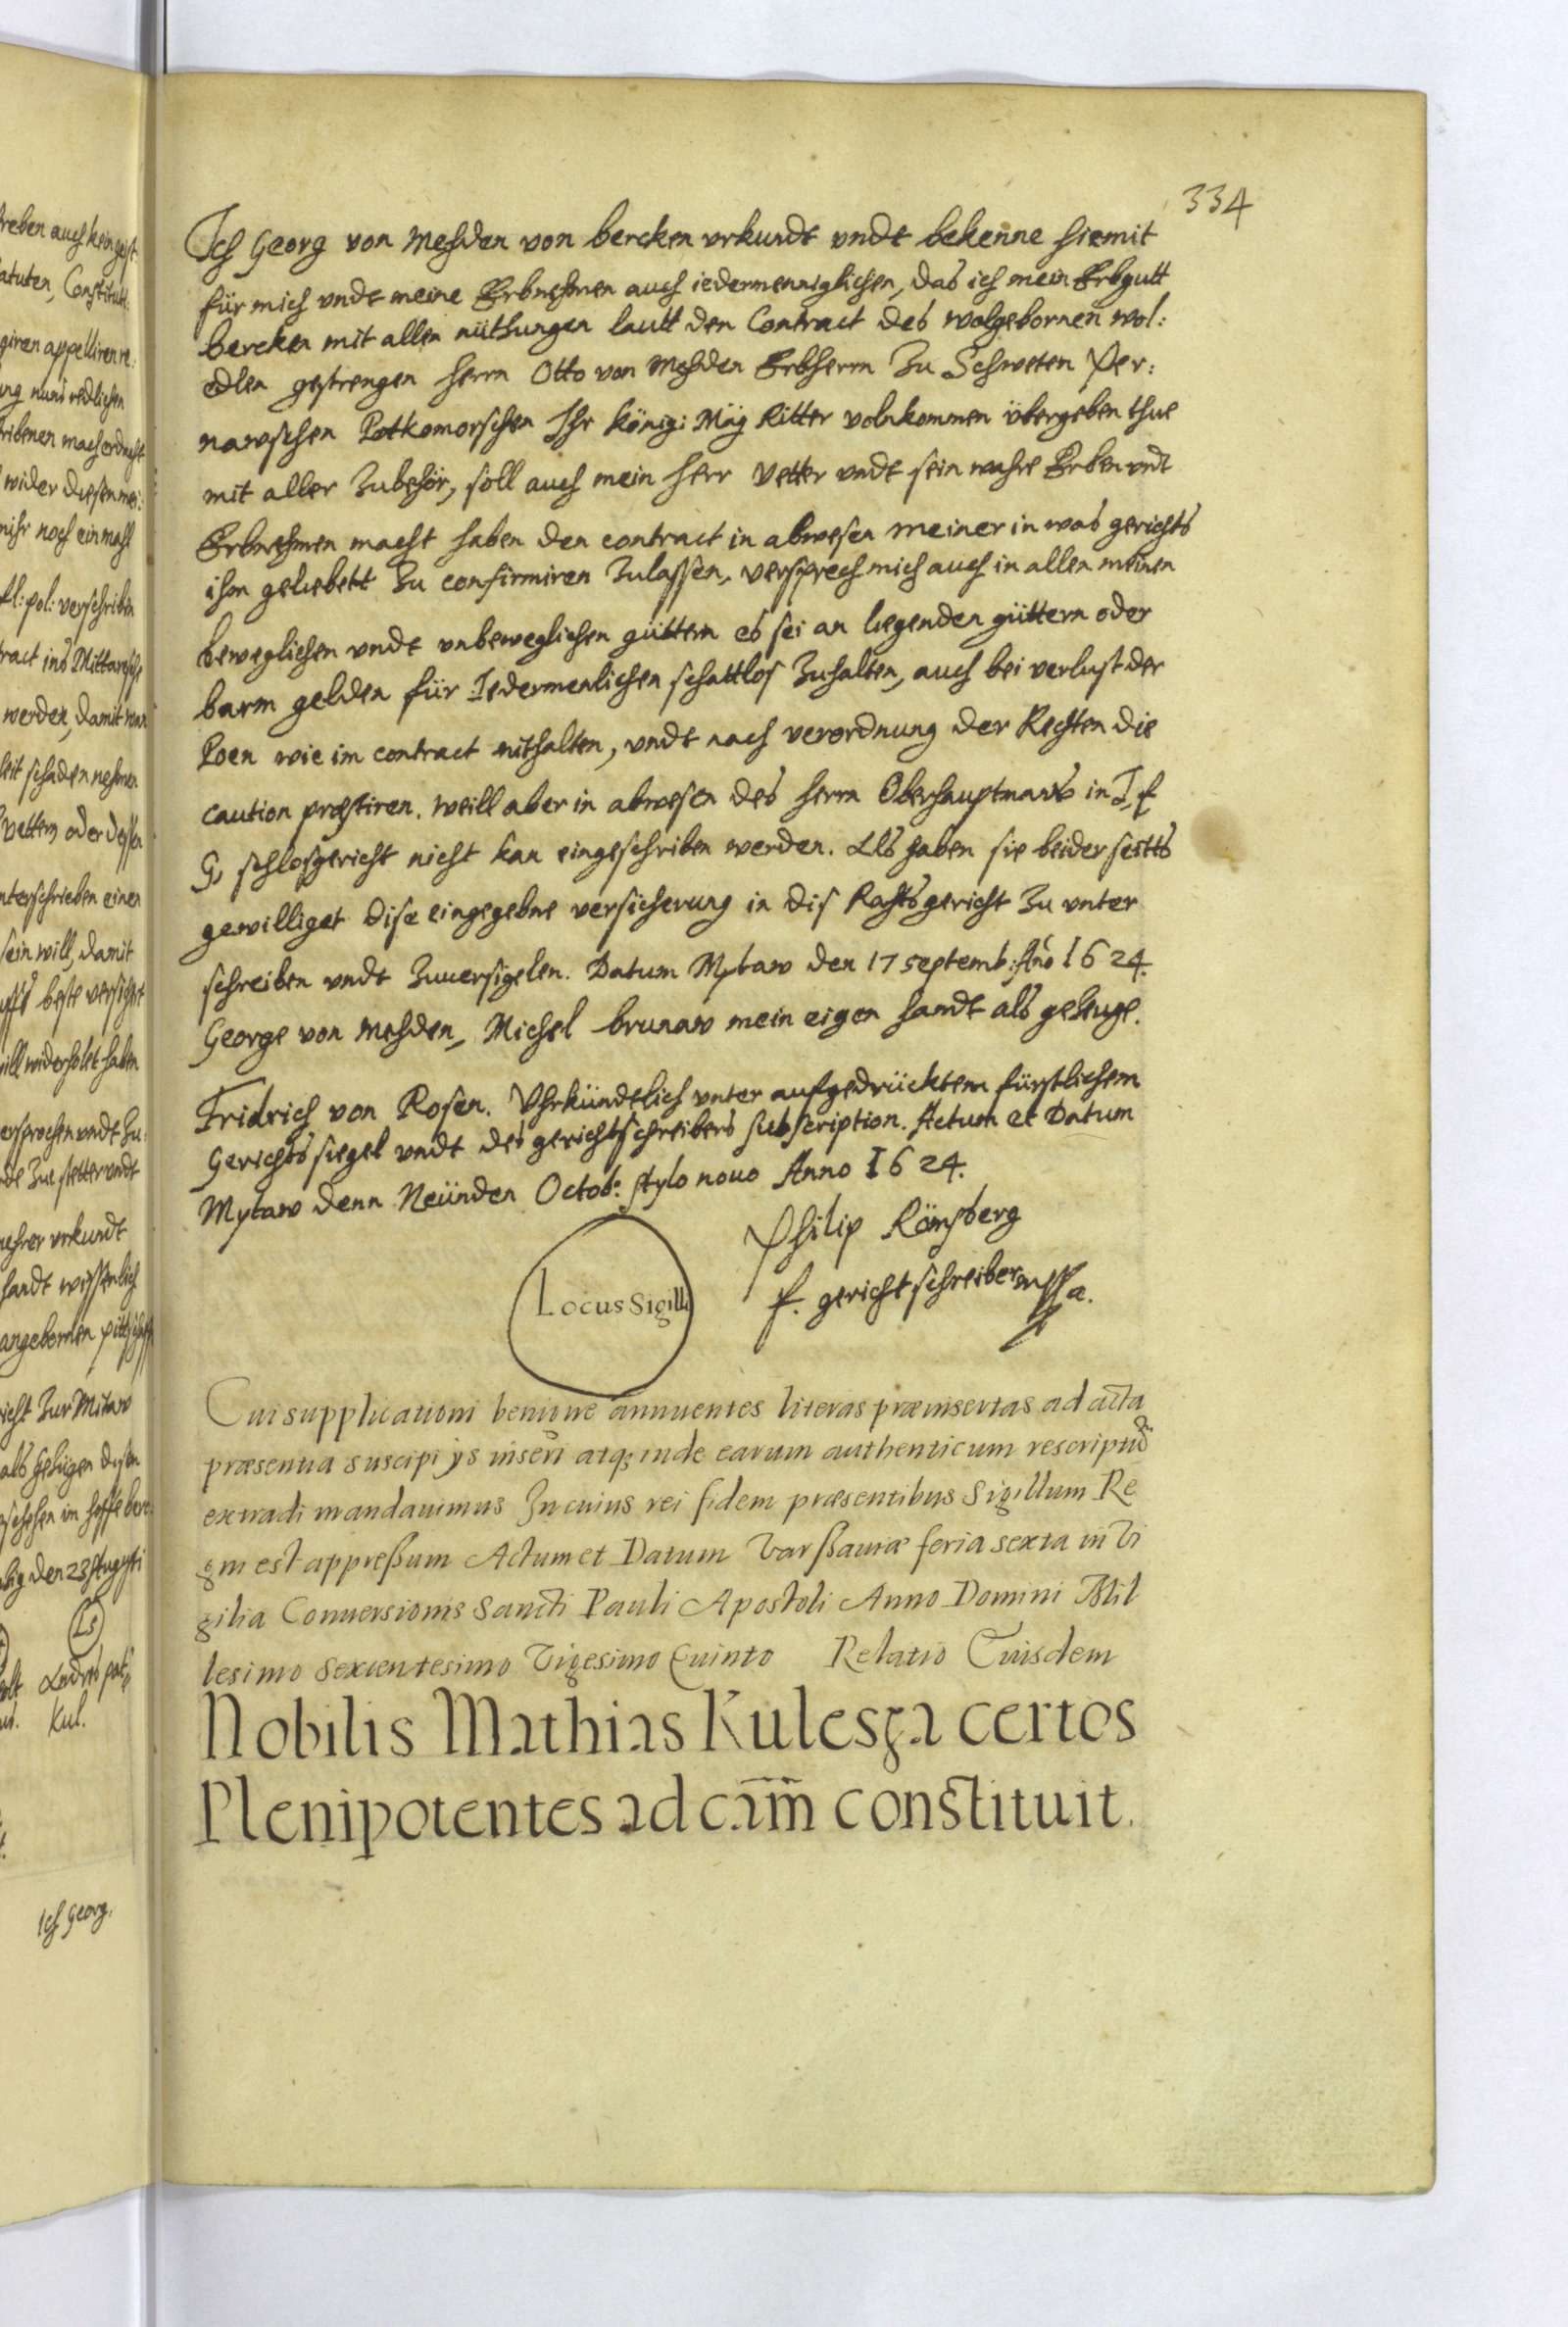 334
Ich Georg von Mehden von bercken vrkundt vndt bekenne hiemit
für mich vndt meine Erbnehmen auch iedermenniglichen, das ich mein Erbgutt
bercken mit allen nüthungen lautt den Contract des wolgebornen wol:
edlen gestrengen herrn Otto von Mehden Erbherrn Zu Schweten Per:
nawschen Potkomorschen Ihr königi: Mäg Ritter volnkommen übergeben thue
mit aller Zubehör, soll auch mein herr Vetter vndt sein wahre Erben vndt
Erbnehmen macht haben den contract in abwesen meiner in was gerichts
ihm geliebett Zu confirmiren Zulassen, versprech mich auch in allen meinen
beweglichen vndt vnbeweglichen güttern es sei an liegenden güttern oder
barm gelden für Iedermenlichen schattlos Zuhalten, auch bei verlust der
Poen wie im contract enthalten, vndt nach verordnung der Rechten die
caution præstiren. weill aber in abwesen des herrn Oberhauptmans in I. f
G. schlosgericht nicht kan eingeschriben werden. Als haben sie beiderseitts
gewilliget dise eingegebne versicherung in dis Rahtsgericht Zu vnter
schreiben vndt Zuuersigelen. Datum Mytaw den 17 septemb: Año 1624.
George von Mehden, Michel brunaw mein eigen handt als geZeuge.
Fridrich von Rosen. Vhrkündtlich vnter aufgedrücktem fürstlichem
Gerichts siegel vndt des gerichtschreibers subscription. Actum et Datum
Mytaw denn Neünden Octob: stylo nouo Anno 1624.
Philip Römsberg
f. gerichtschreiber mppa.
Locus Sigilli
Cui supplicationi benigne annuentes literas præinsertas ad acta
præsentia suscipi ijs inseri atq; inde earum authenticum rescriptũ
extradi mandauimus In cuius rei fidem præsentibus Sigillum Re
gni est appreßum Actum et Datum Varßauiæ feria sexta in Vi
gilia Conuersionis Sancti Pauli Apostoli Anno Domini Mil
lesimo Sexcentesimo Vigesimo Quinto Relatio Eiusdem
Nobilis Mathias Kulesza certos
Plenipotentes ad cãm constituit.
Ich Georg.